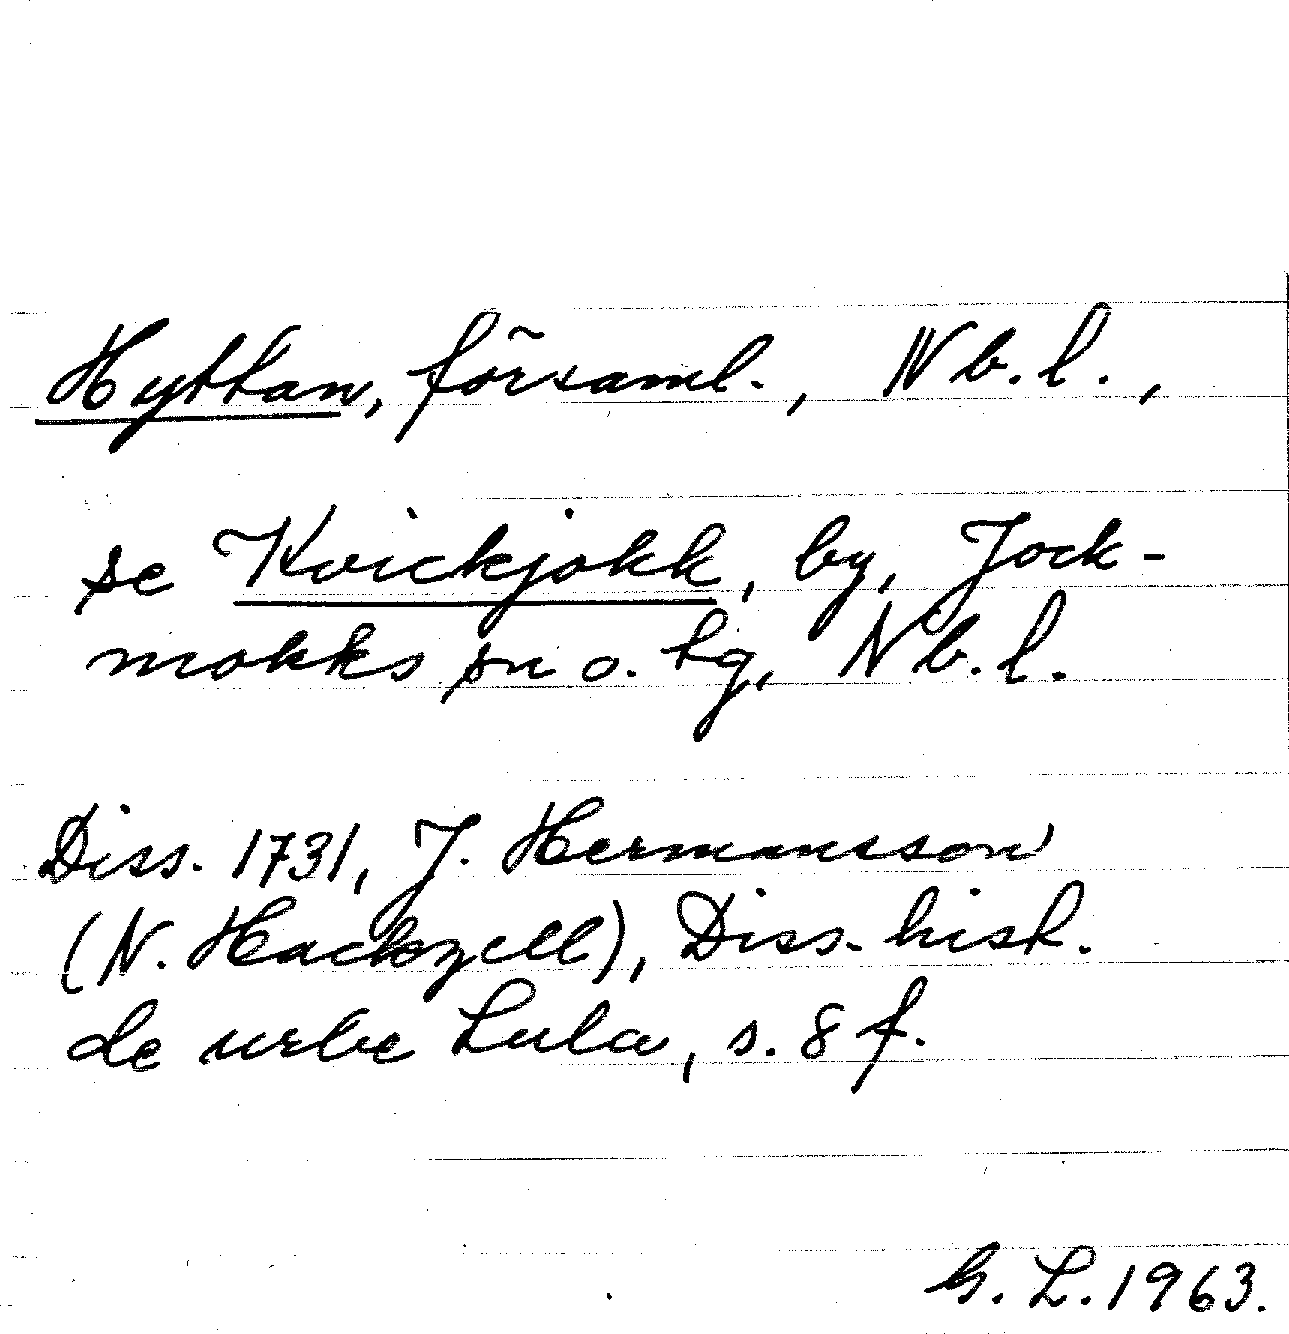 Hyttan, församl., Nb.l.,
se Kvickjokk, by, Jock-
mokks sn o. tg, Nb.l.
Diss. 1731, J. Hermansson
(N. Hackzell), Diss. hist.
de urbe Lula, s. 8 f.
G. L. 1963.